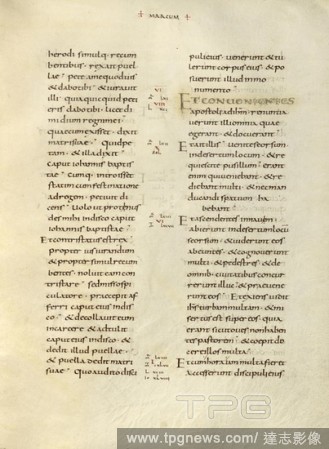 + MARCUM +
herodi simulq· recum
bentibus · rex ait puel
lae · pete ame quod uis
& dabo tibi · & iurauit
illi quia quicquid peti
eris dabo tibi · licet di
midium regni mei ·
quae cum exisset · dixit
matri suae · Quid pe
tam · & illa dixit
caput iohannis baptis
tae · cumq· introisset
statim cum festinatione
ad regem · petiuit di
cens · uolo ut protinus
des mihi indisco caput
iohannis baptistae ·
Et contristatus est rex
propter iusiurandum
& propter simul recum
bentes · noluit eam con
tristare · sed misso spi
culatore · praecepit af
ferri caput eius indis
co · & decollauit eum
in carcere & attulit
caput eius indisco · &
dedit illud puellae ·
& puella dedit matri
suae · Quo audito disci
puli eius uenerunt & tu
lerunt corpus eius & po
suerunt illud in mo
numento ·
ET CONUENIENTES
apostoli ad ihm · renuntia
uerunt illi omnia quae
egerant · & docuerant ·
Et ait illis · uenite seorsum
in desertum locum · & re
quiescite pusillum · erant
enim qui ueniebant & re
diebant multi · & nec man
ducandi spatium ha
bebant ·
Et ascendentes in nauim ·
abierunt in desertum locum
seorsum · & uiderunt eos
abeuntes · & cognouerunt
multi · & pedestres · & de
omnib· ciuitatibus concur
rerunt illuc & praeuene
runt eos · Et exiens uidit
multam turbam ihs · & mi
sertus est super eos · quia
erant sicut oues non haben
tes pastorem · & coepit do
cere illos multa ·
Et cum iam hora multa fieret
accesserunt discipuli eius
TPG
www.tpgnews.com/達志影像